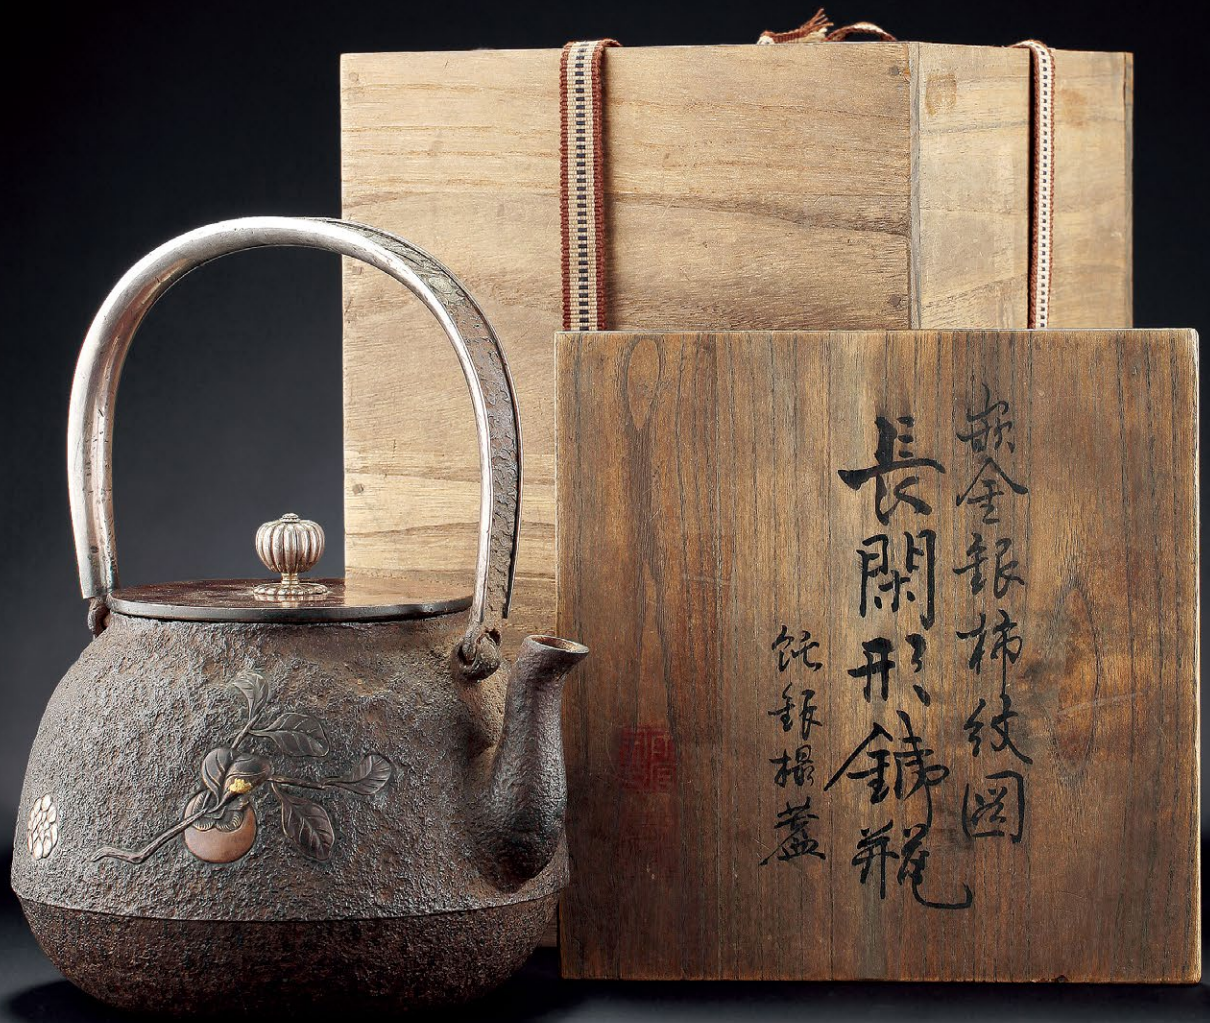 嵌金銀柿紋図
長閑形鉄瓶
純銀撮蓋